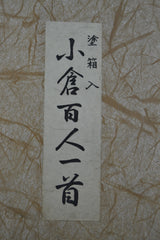 塗箱入
小倉百人一首